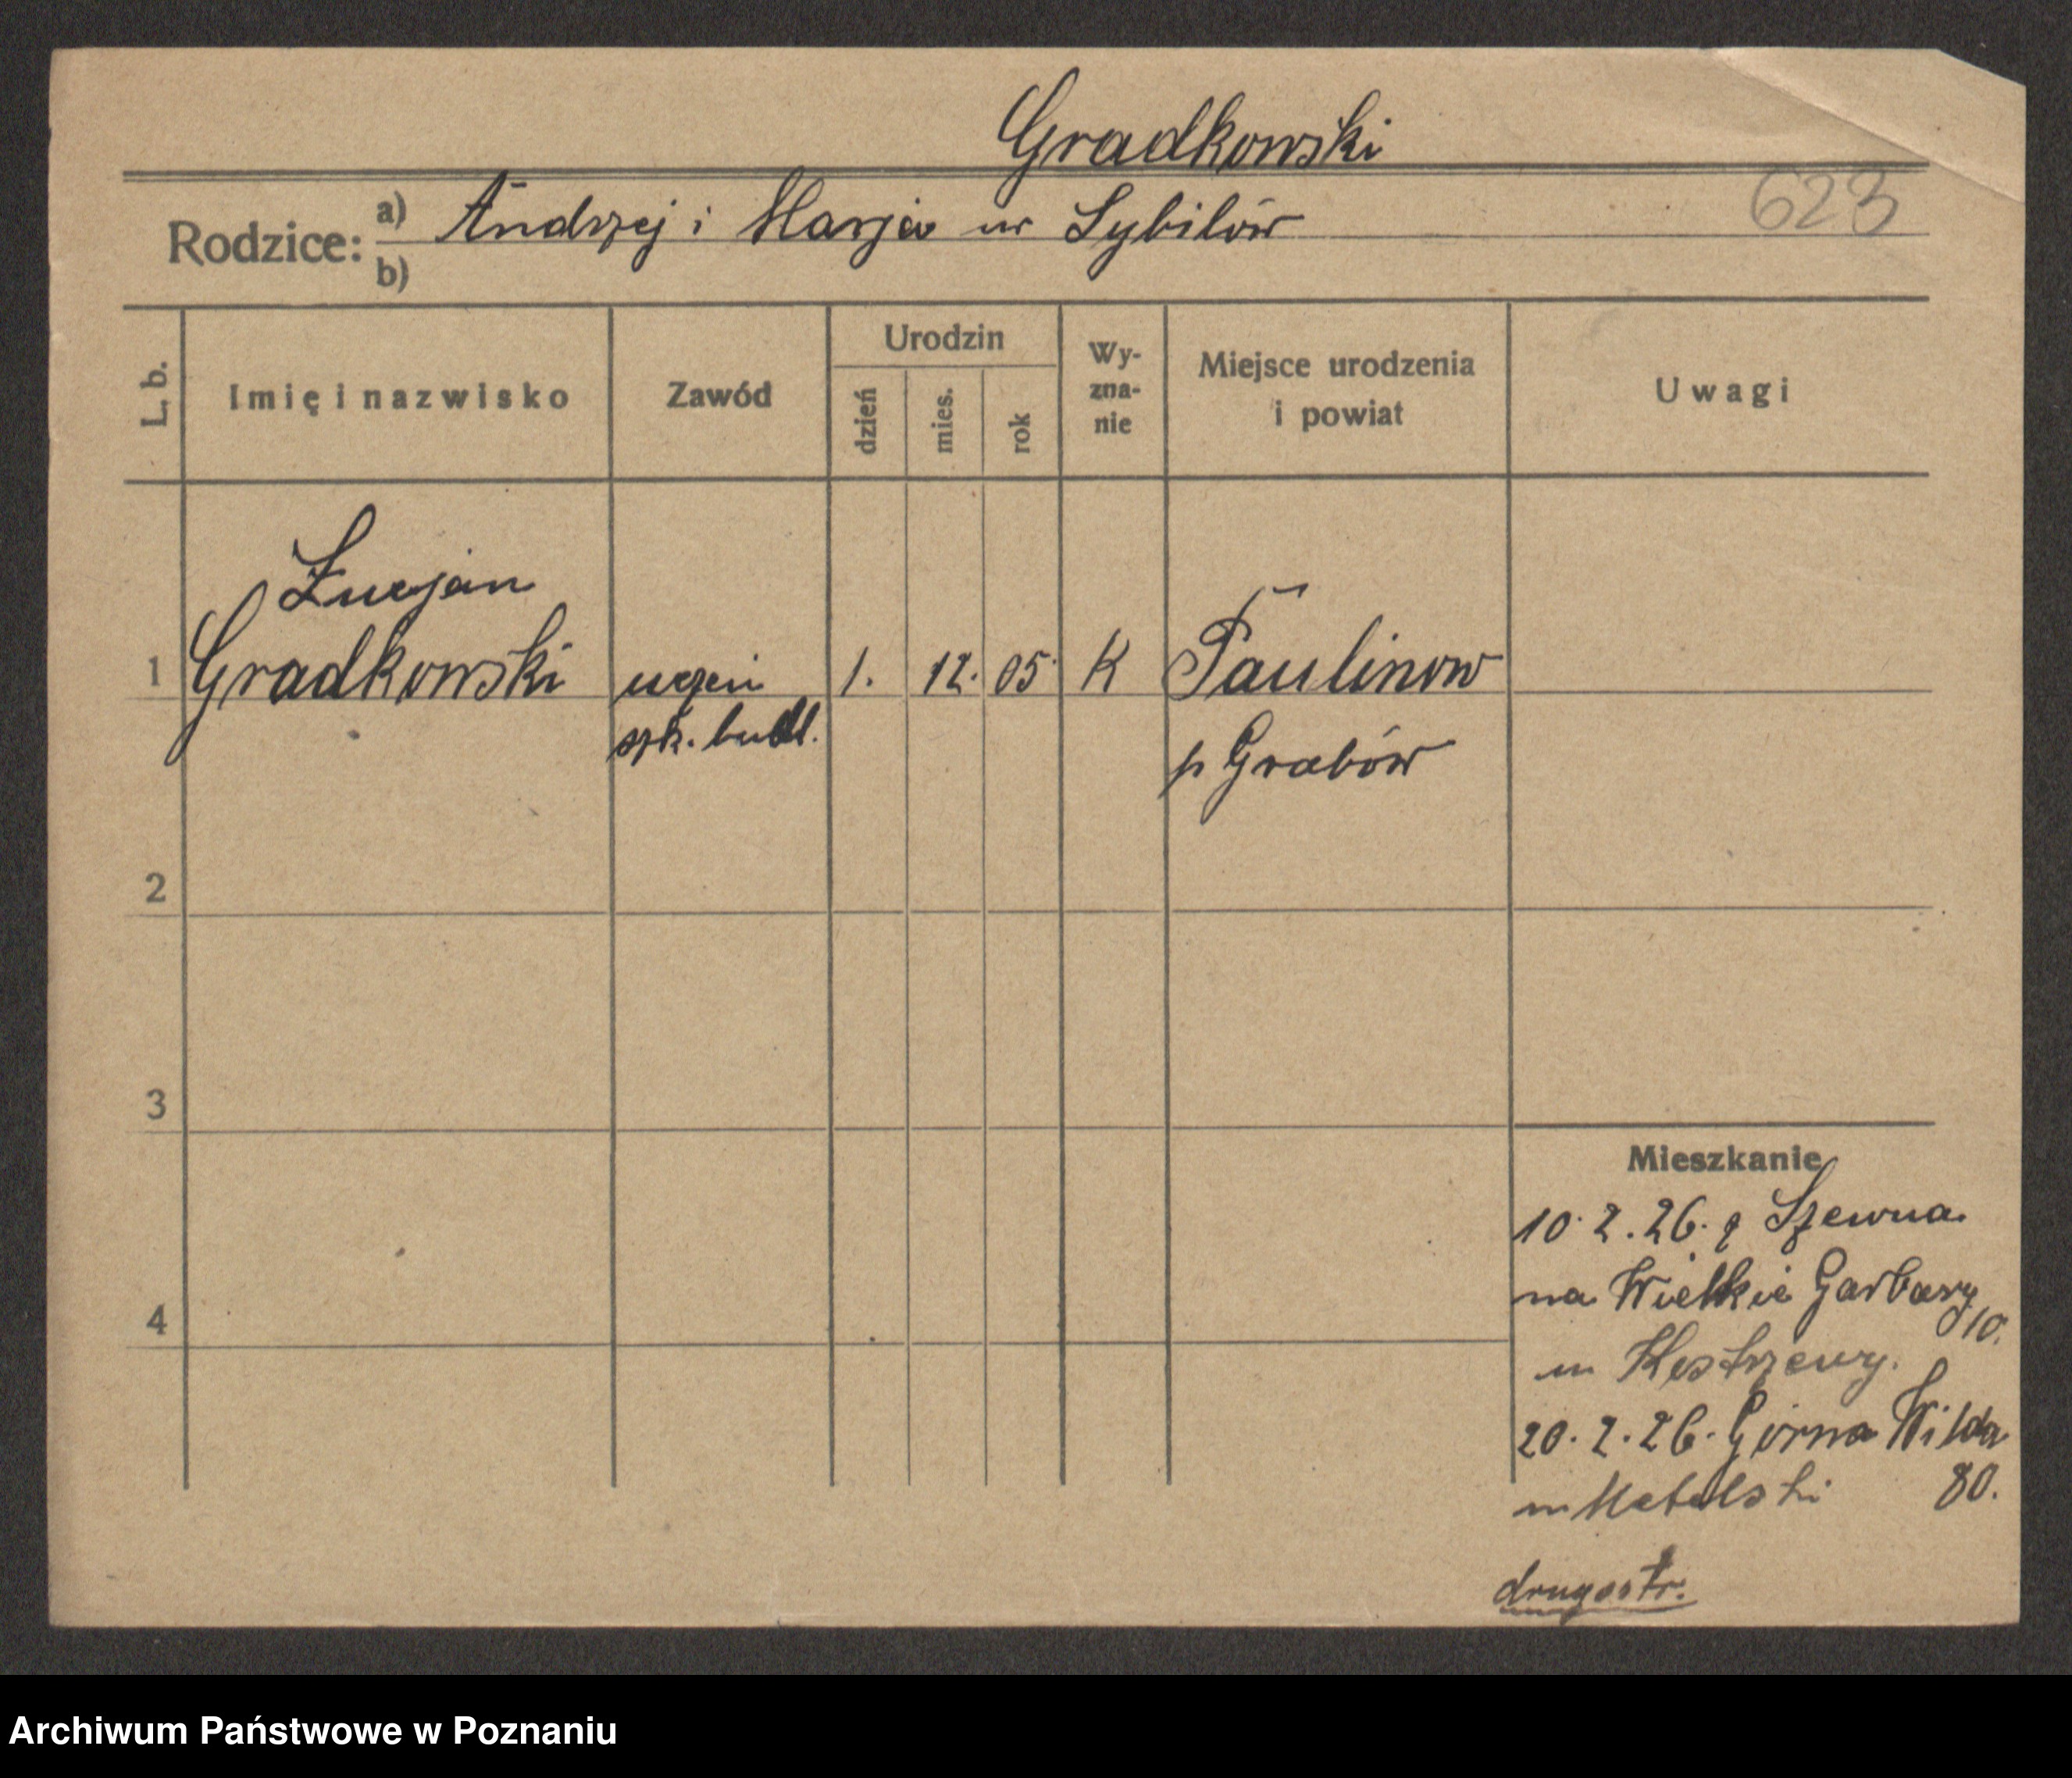 Gradkowski
623
Rodzice: a) Andrzej i Marja ur Sybilów
b)
L. b. Imię i nazwisko Zawód Urodzin dzień mies. rok Wy-zna-nie Miejsce urodzenia i powiat Uwagi
Lucjan
1 Gradkowski uczeń 1. 12. 05 K Paulinow
szk. budl. p Grabów
2
3
Mieszkanie
10.2.26. z Szewna
na Wielkie Garbary
10.
4
m
20.2.26. Górna Wilda
m 80.
drugastr.
Archiwum Państwowe w Poznaniu